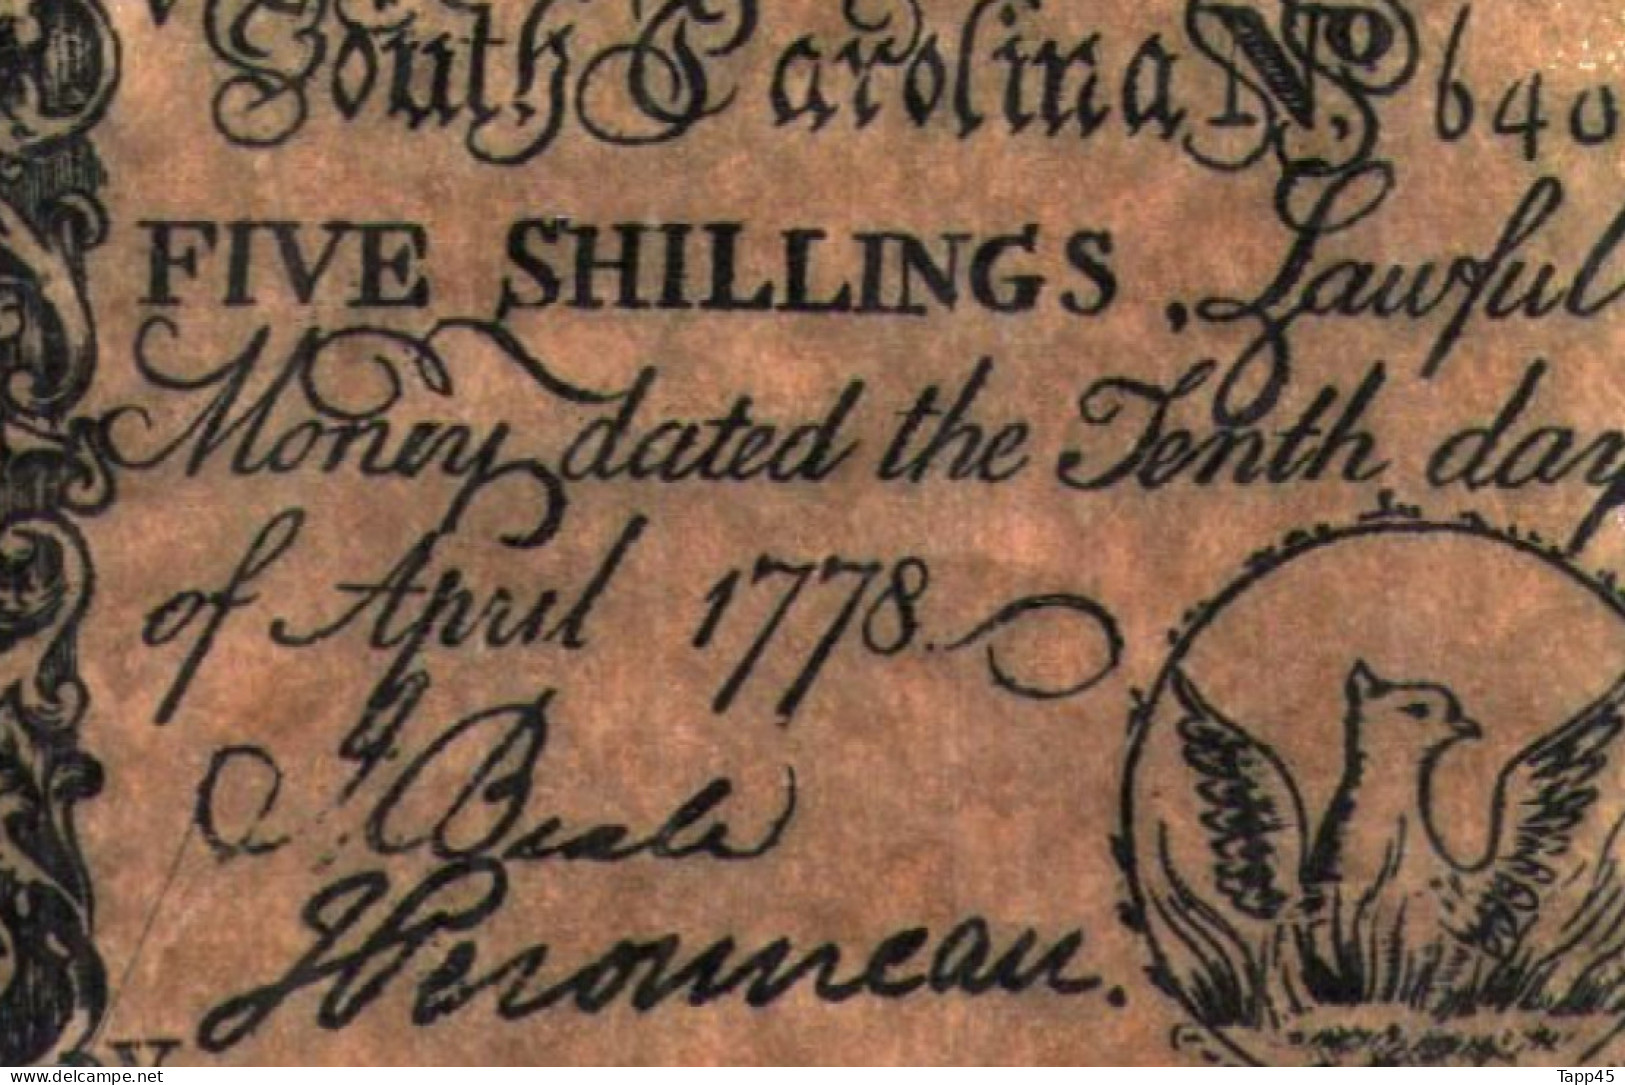 South Carolina No. 640
FIVE SHILLINGS, Lawful
Money dated the Tenth day
of April 1778.
Beale
Peronneau.
www.delcampe.net
Tapp45